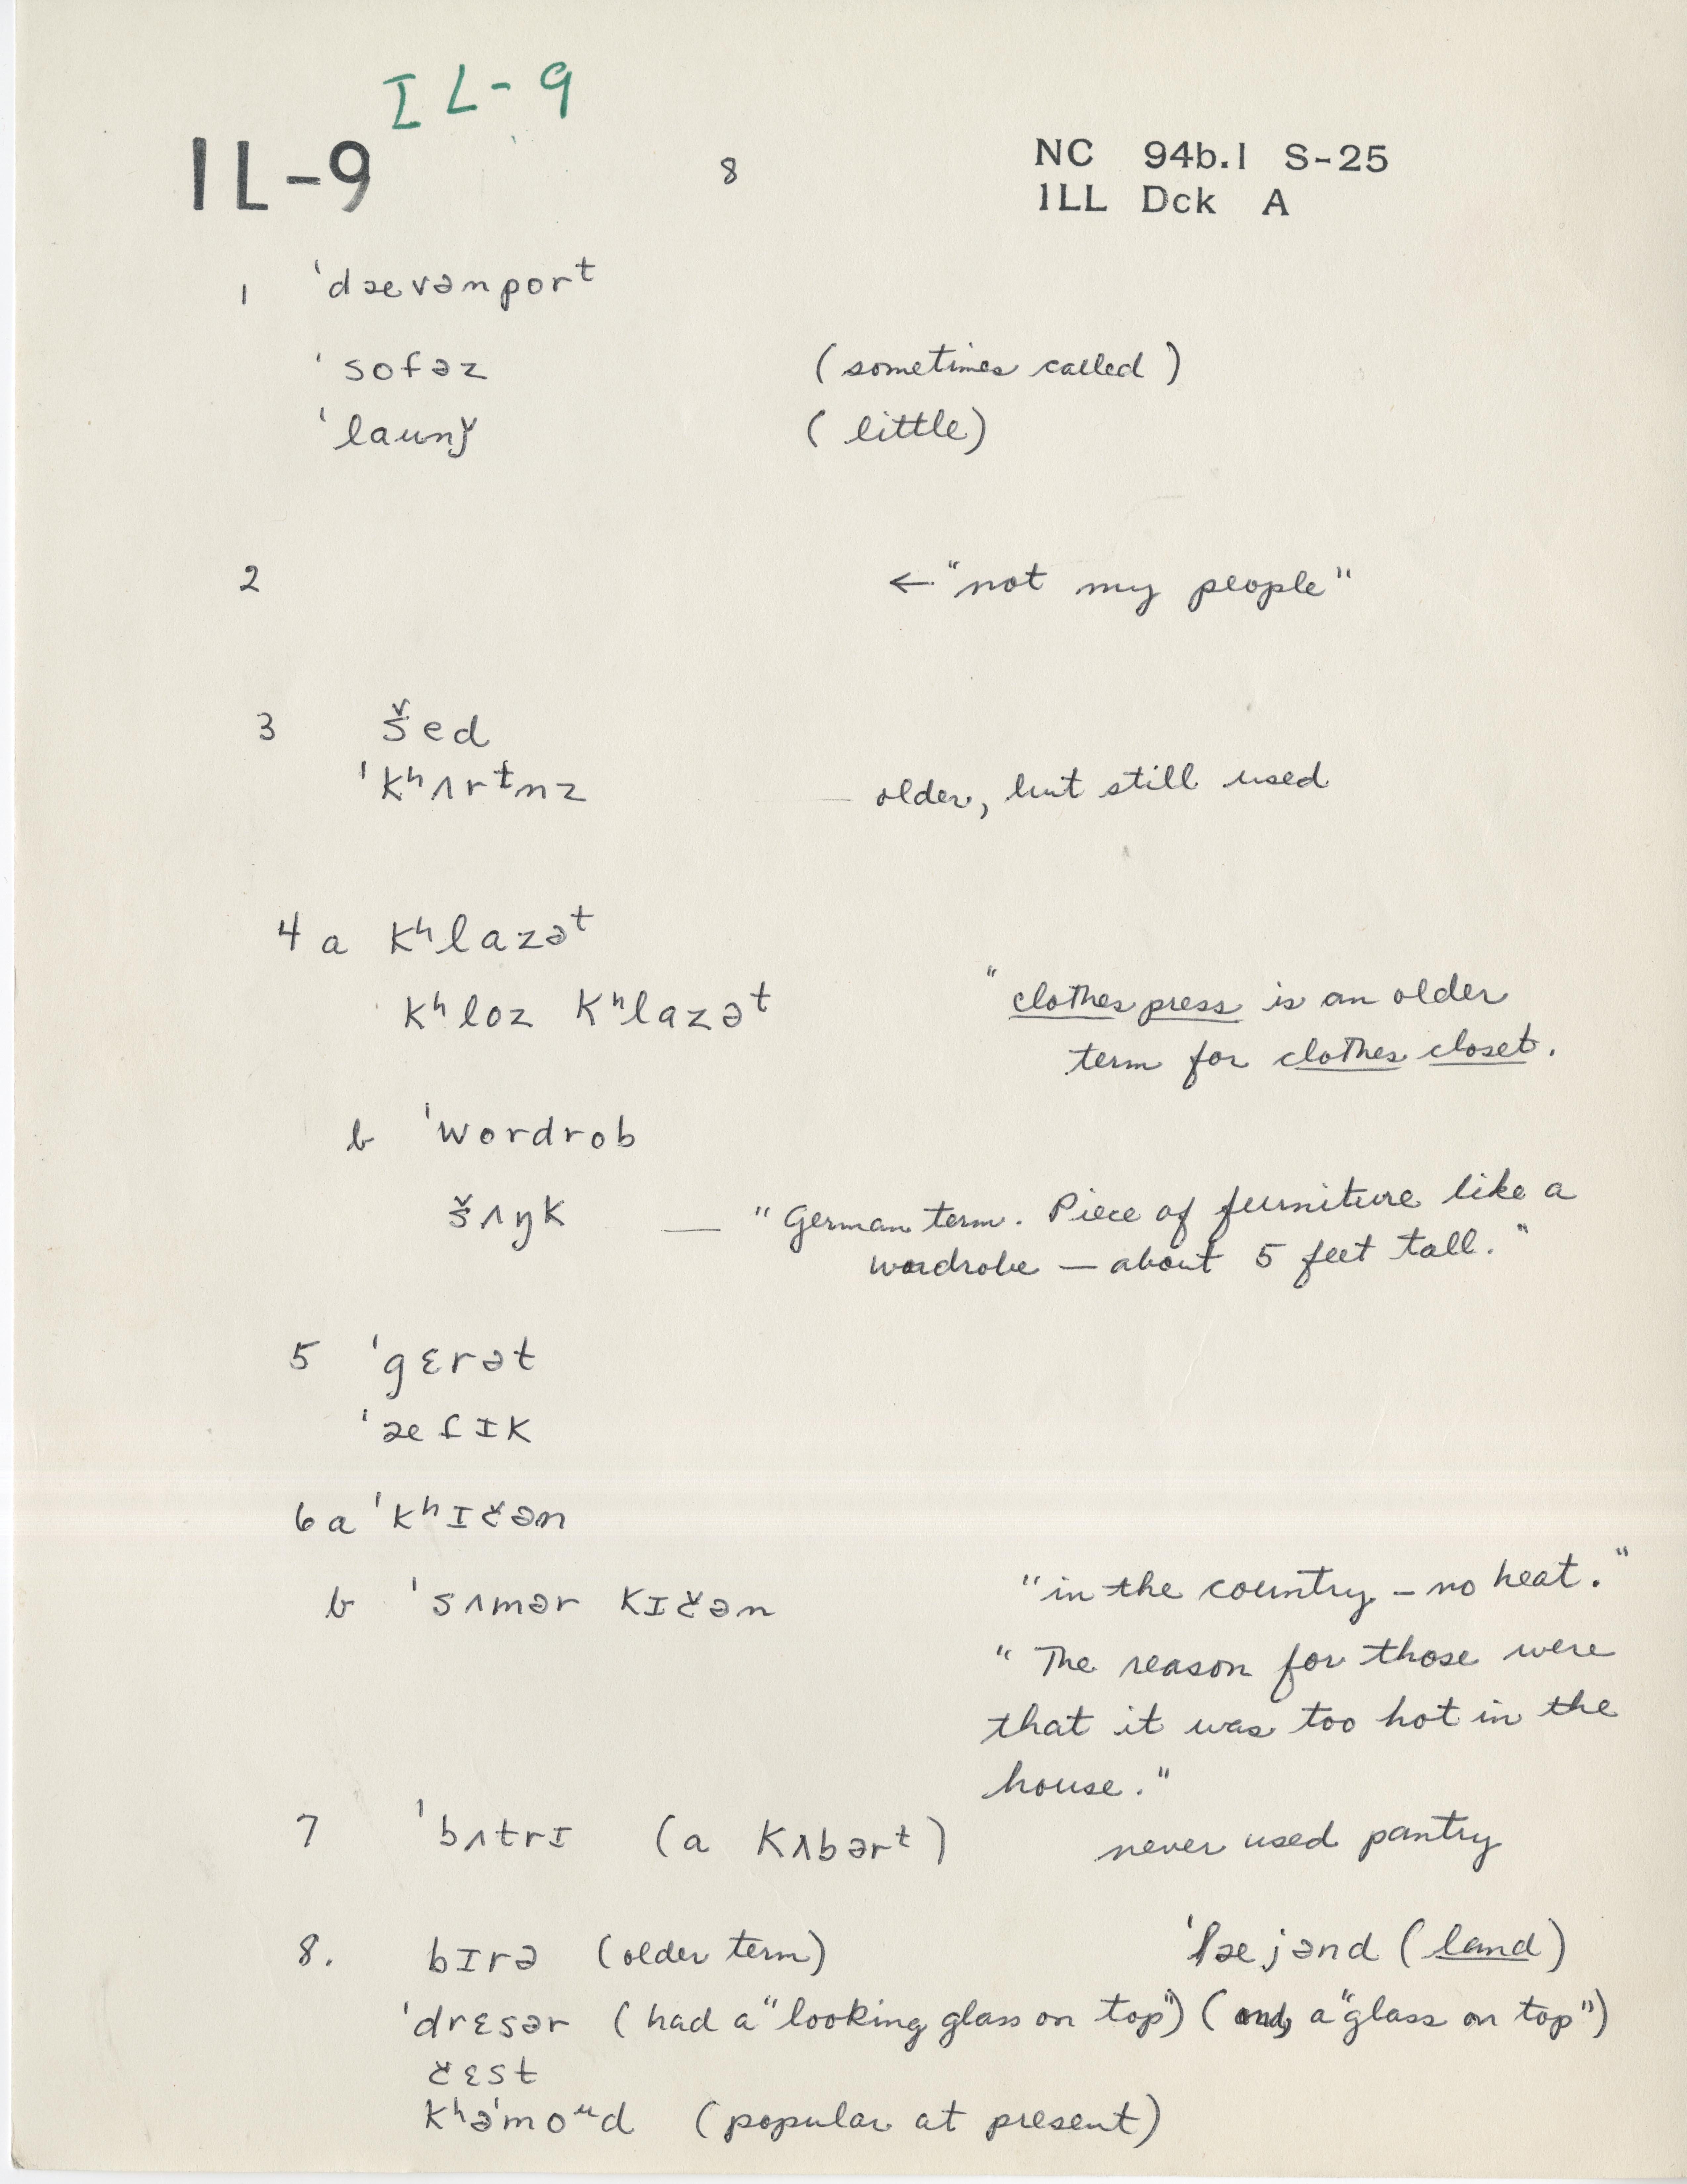 IL-9
IL-9 8 NC 94b.1 S-25
ILL Dck A
1 ˈdævənporᵗ
ˈsofəz (sometimes called)
ˈlaunǰ (little)
2 ← "not my people"
3 šed
ˈkʰʌrᵗnz — older, but still used
4 a kʰlazəᵗ
kʰloz kʰlazəᵗ "clothes press is an older
term for clothes closet.
b ˈwordrob
šʌŋk — "German term. Piece of furniture like a
wardrobe — about 5 feet tall."
5 ˈgɛrət
ˈæfɪk
6 a ˈkʰɪčən
b ˈsʌmər kɪčən "in the country – no heat."
"The reason for those were
that it was too hot in the
house."
7 ˈbʌtrɪ (a kʌbərᵗ) never used pantry
8. bɪrə (older term) ˈlæjənd (land)
ˈdrɛsər (had a "looking glass on top") (and, a "glass on top")
čɛst
kʰəˈmoᵘd (popular at present)